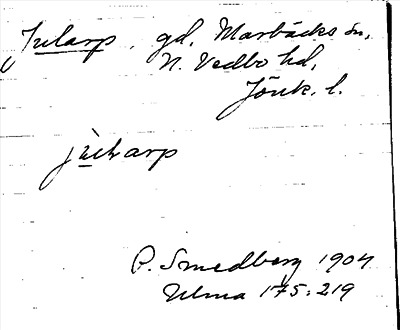 Jularp, gd, Marbäcks sn,
N. Vedbo hd,
Jönk. l.
jùlarp
P. Smedberg 1904
Ulma 175:219